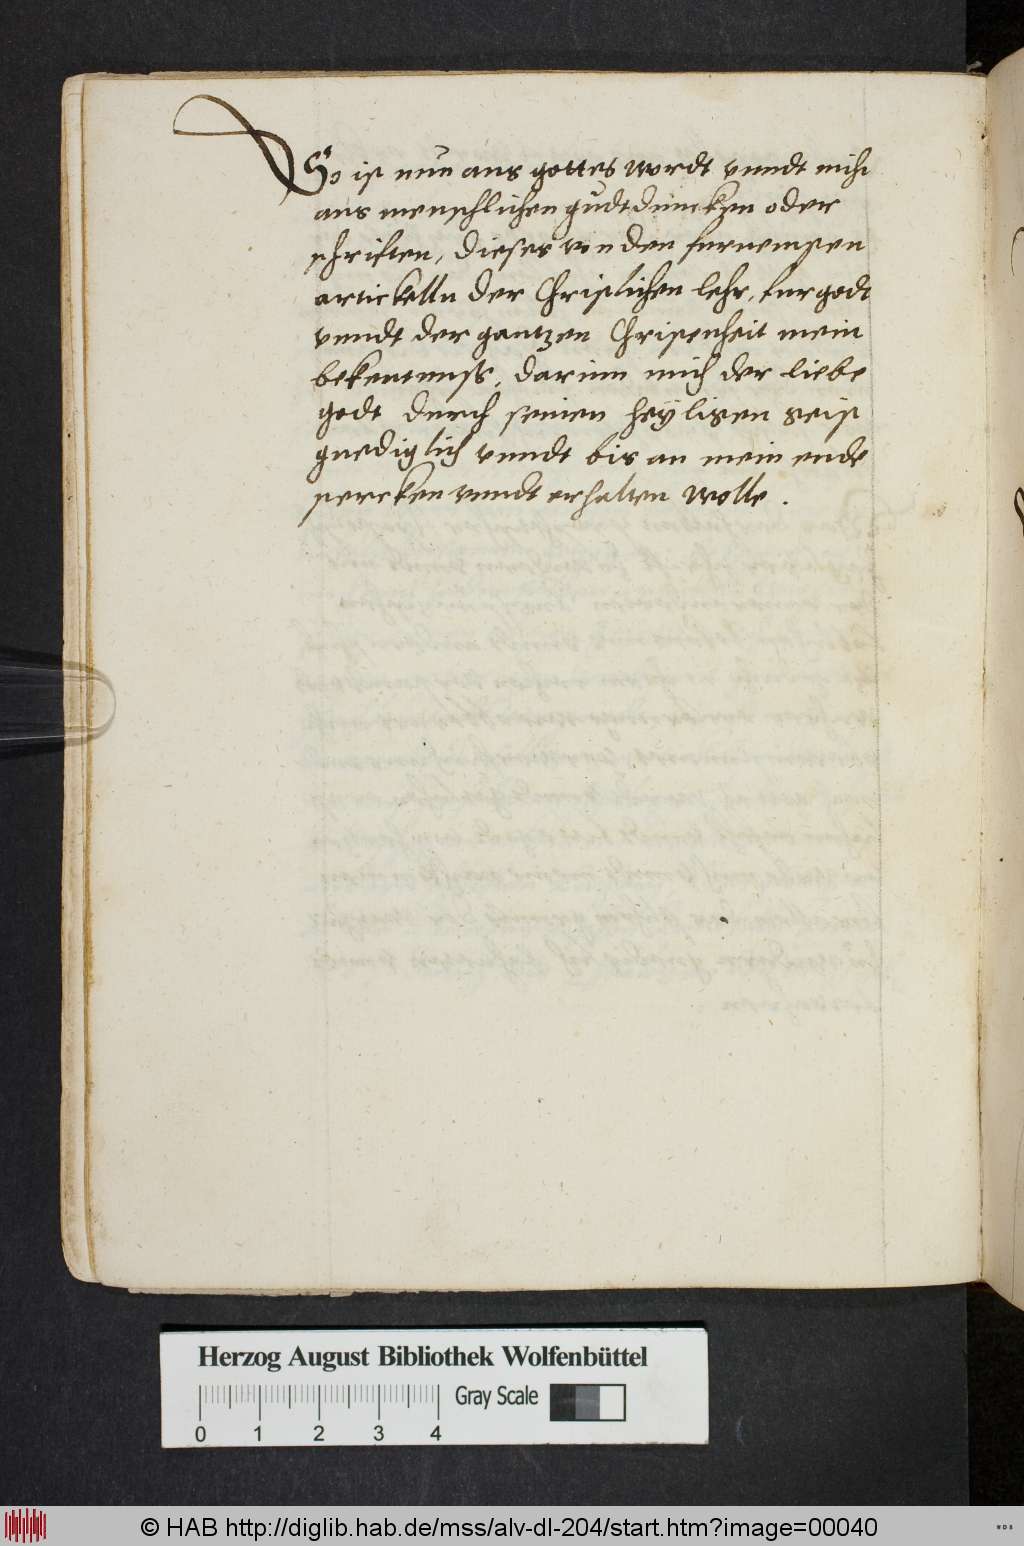 So ist nun aus gottes wordt vnndt nicht
aus menschlichen gudtduncken oder
schrifften, dieses von den furnemsten
artickelln der Christlichen lehr, fur godt
vnndt der gantzen Christenheit mein
bekentnuss, darinn mich der liebe
godt durch seinen heyligen geist
gnediglich vnndt bis an mein ende
stercken vnndt erhalten wolle.
Herzog August Bibliothek Wolfenbüttel
Gray Scale
0 1 2 3 4
© HAB http://diglib.hab.de/mss/alv-dl-204/start.htm?image=00040